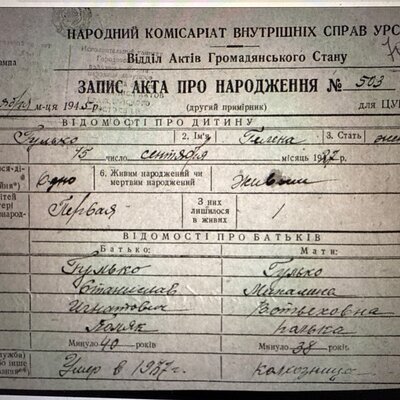 НАРОДНИЙ КОМІСАРІАТ ВНУТРІШНІХ СПРАВ УРС
Відділ Актів Громадянського Стану
ЗАПИС АКТА ПРО НАРОДЖЕННЯ № 503
м-ця 1945 р. (другий примірник) для ЦУ
ВІДОМОСТІ ПРО ДИТИНУ
Гулько 2. Ім'я Гелена 3. Стать
15 число сентября місяць 1937 р.
Одно 6. Живим народжений чи мертвим народжений Живым
Первая З них лишилося в живих 1
ВІДОМОСТІ ПРО БАТЬКІВ
Батько: Мати:
Гулько Гулько
Станислав
Игнатович Войтеховна
Поляк полька
Минуло 40 років Минуло 38 років
Умер в 1937 г. колхозница